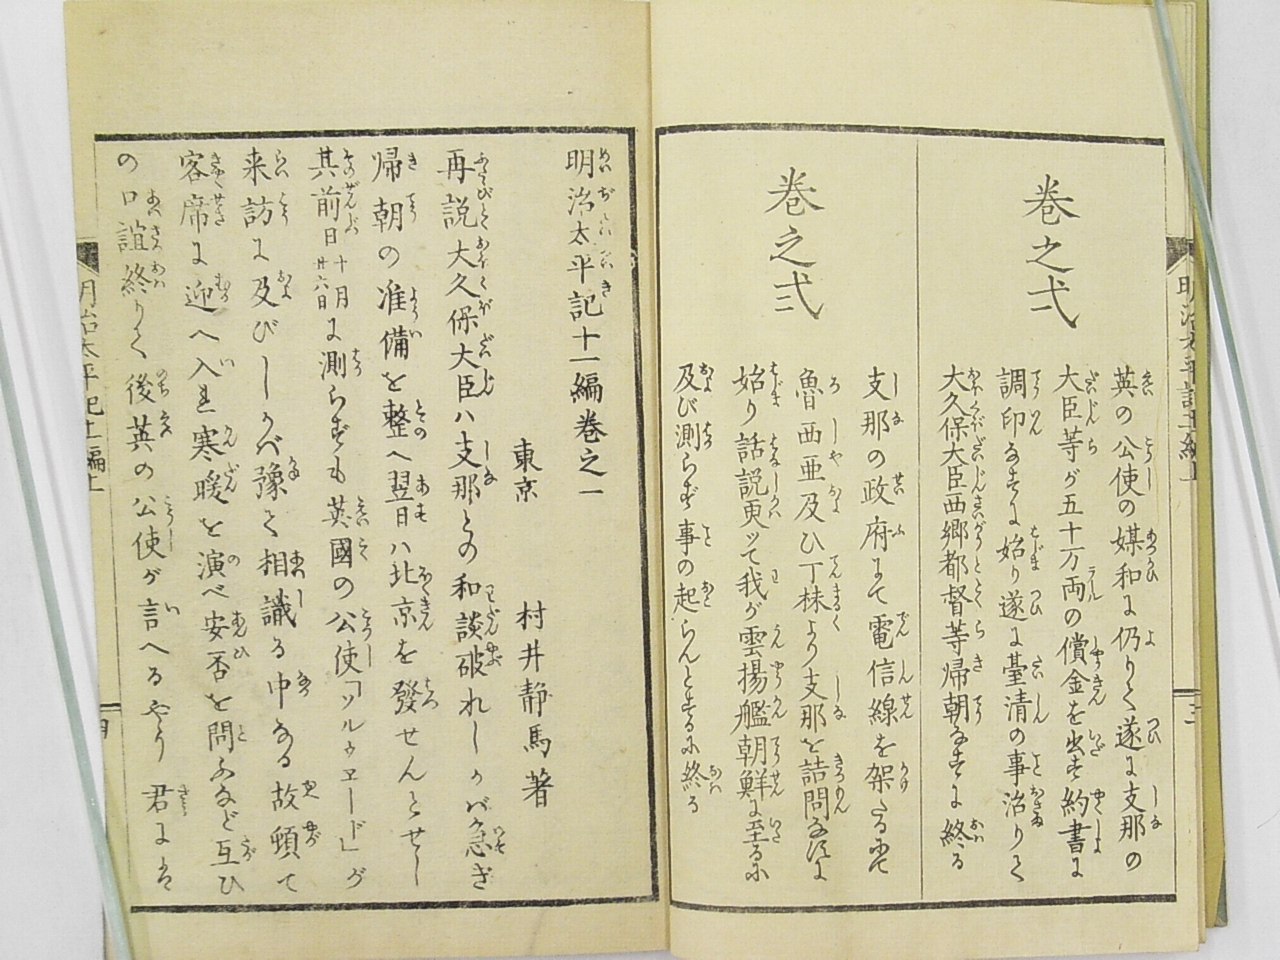 巻之弌
英の公使の媒和に仍りて遂に支那の
大臣等が五十万両の償金を出す約書に
調印なすに始り遂に臺清の事治りて
大久保大臣西郷都督等帰朝なすに終る
巻之弍
支那の政府にて電信線を架たるにて
魯西亜及ひ丁抹より支那を詰問なすに
始り話説更ッて我が雲揚艦朝鮮に至るに
及び測らず事の起らんとするに終る
明治太平記十一編巻之一
東京 村井静馬著
再説大久保大臣ハ支那との和談破れしかバ急ぎ
帰朝の准備を整へ翌日ハ北京を發せんとせし
其前日十月廿六日に測らずも英國の公使「ソルウヱード」が
来訪に及びしかバ豫て相識る中なる故頓て
客席に迎へ入れ寒暖を演べ安否を問ふなど互ひ
の口誼終りて後英の公使が言へるやう君には